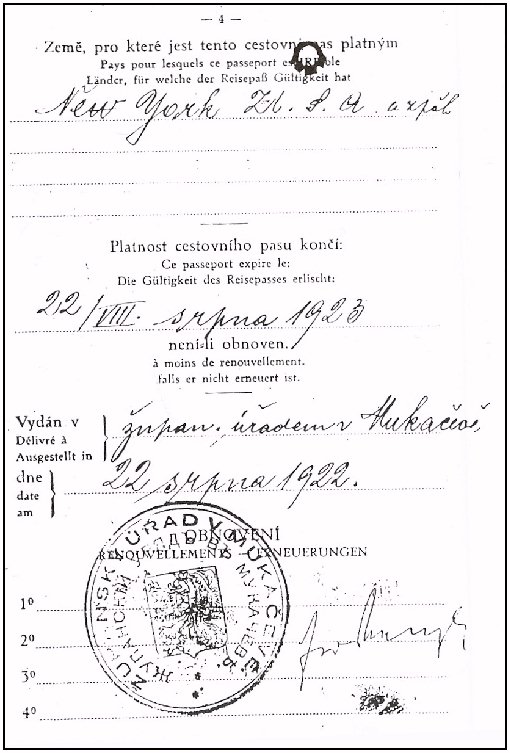 — 4 —
Země, pro které jest tento cestovní pas platným
Pays pour lesquels ce passeport est
Länder, für welche der Reisepaß Gültigkeit hat
New York U. S. A. a zpět
Platnost cestovního pasu končí:
Ce passeport expire le:
Die Gültigkeit des Reisepasses erlischt:
22/VIII. srpna 1923
není-li obnoven.
à moins de renouvellement.
falls er nicht erneuert ist.
Vydán v
Délivré à
Ausgestellt in
župan. úřadem v Mukačevě
dne
date
am
22 srpna 1922.
OBNOVENÍ
RENOUVELLEMENTS — ERNEUERUNGEN
ŽUPANSKÝ ÚŘAD V MUKAČEVĚ
1º
2º
3º
4º